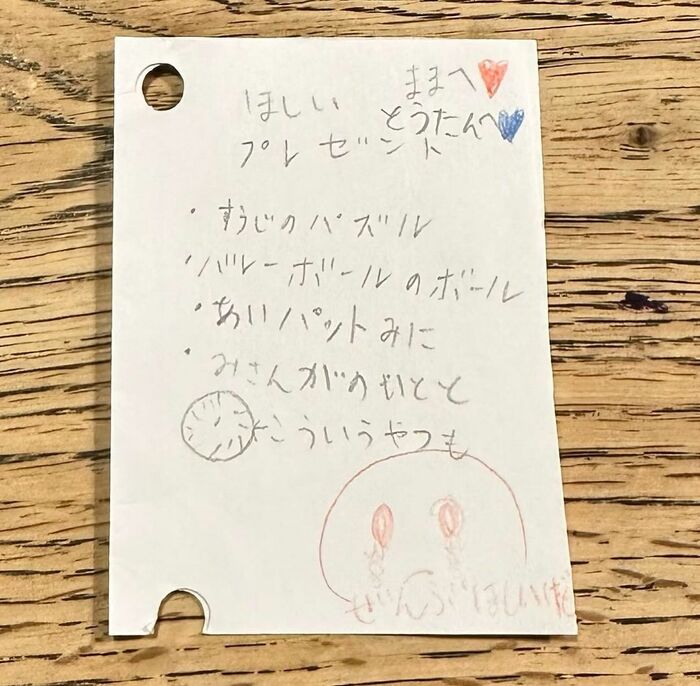 ままへ
とうたんへ
ほしい
プレゼント
・すうじのパズル
・バレーボールのボール
・あいパットみに
・みさんがのいとと
こういうやつも
ぜんぶほしいけど